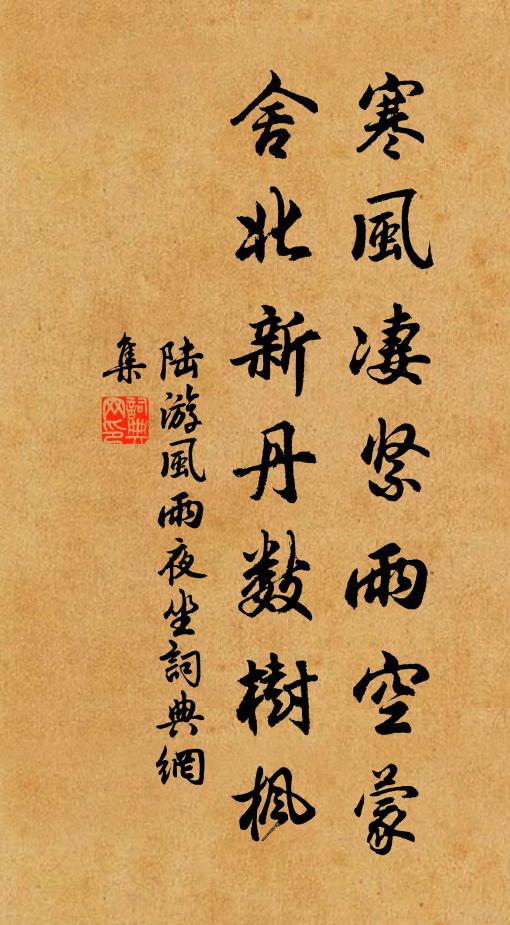 寒風凄緊雨空蒙
舍北新丹数樹楓
陸游風雨夜坐詞典網
集
詞典網印